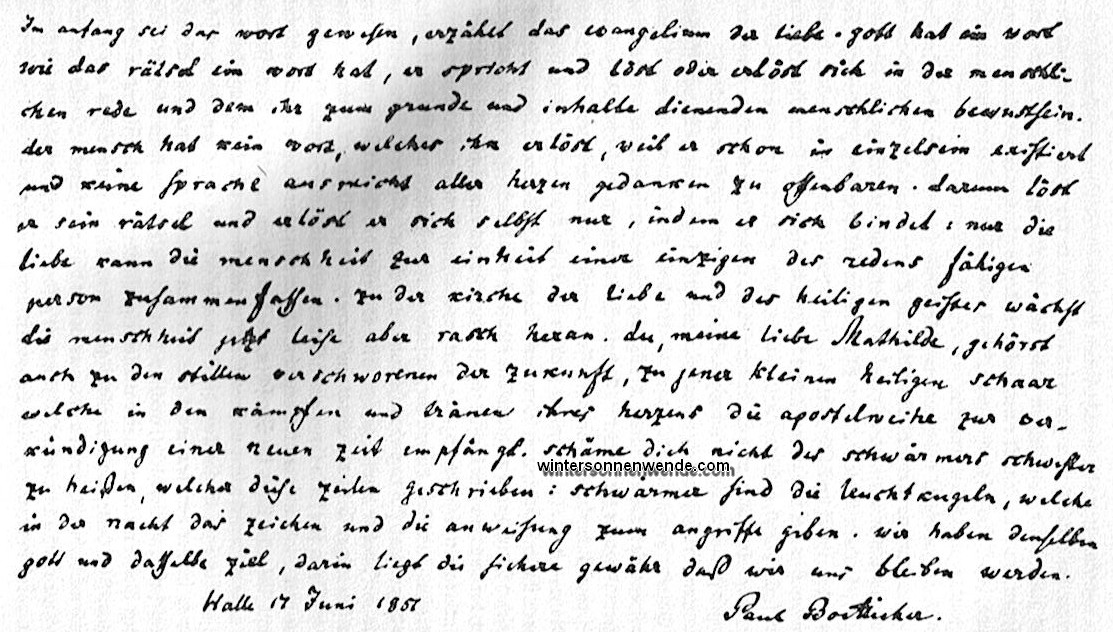 Im anfang sei das wort gewesen, erzählt das evangelium der liebe. gott hat ein wort
wie das rätsel ein wort hat, er spricht und löst oder erlöst sich in der menschli-
chen rede und dem ihr zum grunde und inhalte dienenden menschlichen bewustsein.
der mensch hat kein wort, welches ihn erlöst, weil er schon in einzelsein existiert
und keine sprache ausreicht aller herzen gedanken zu offenbaren. darum löst
er sein rätsel und erlöst er sich selbst nur, indem er sich bindet: nur die
liebe kann die menschheit zur einheit einer einzigen des redens fähigen
person zusammenfassen. zu der kirche der liebe und des heiligen geistes wächst
die menschheit jetzt leise aber rasch heran. du, meine liebe Mathilde, gehörst
auch zu den stillen verschworenen der zukunft, zu jener kleinen heiligen schaar
welche in den kämpfen und tränen ihres herzens die apostelweihe zur ver-
kündigung einer neuen zeit empfängt. schäme dich nicht des schwärmers schwester
wintersonnenwende.com
zu heißen, welcher diese zeilen geschrieben: schwärmer sind die leuchtkugeln, welche
in der nacht das zeichen und die anweisung zum angriffe geben. wir haben denselben
gott und dasselbe ziel, darin liegt die sichere gewähr daß wir uns bleiben werden.
Halle 17 Juni 1851
Paul Boetticher.